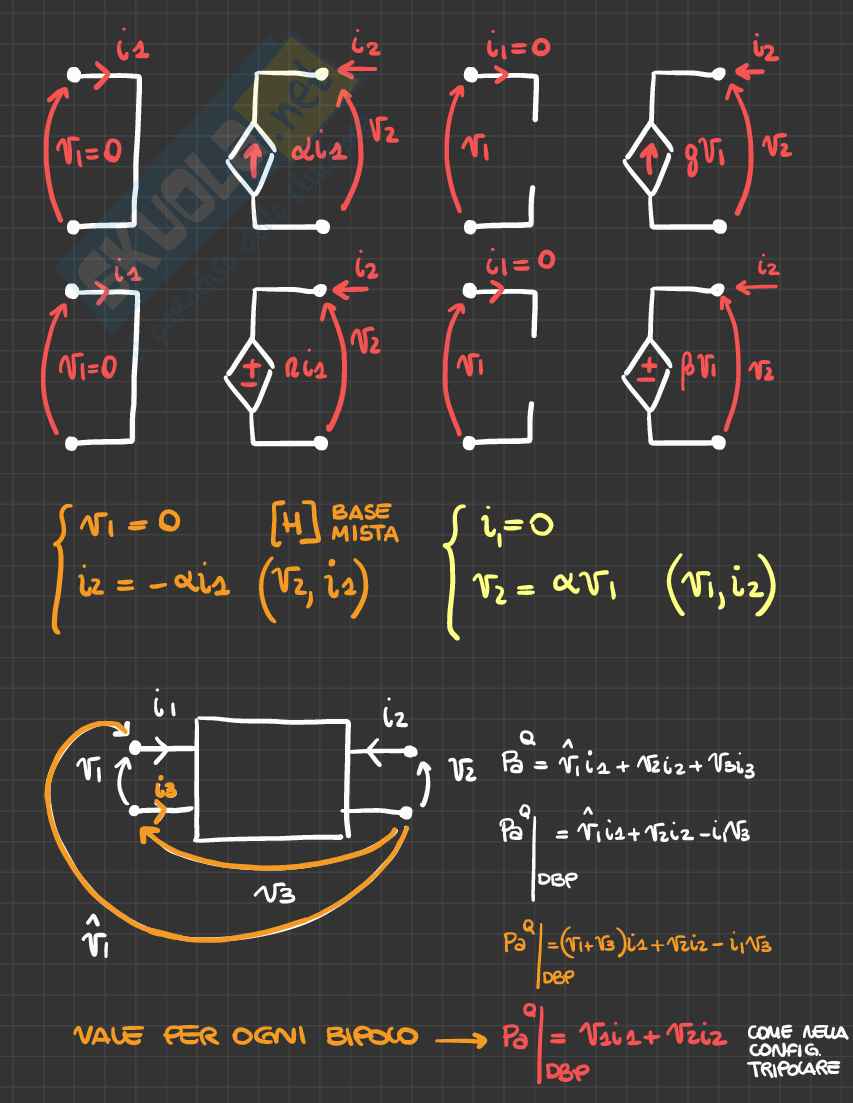 i1 i2 i1=0 i2
v1=0 αi1 v2 v1 gv1 v2
i1 i2 i1=0 i2
v1=0 ri1 v2 v1 βv1 v2
SKUOLA.net
{ v1 = 0 [H] BASE MISTA
i2 = -αi1 (v2, i1)
{ i1=0
v2 = αv1 (v1, i2)
i1 i2
v1 v2
i3
v3
v̂1
Pa^Q = v̂1i1 + v2i2 + v3i3
Pa^Q |DBP = v̂1i1 + v2i2 - i1v3
Pa^Q |DBP = (v1+v3)i1 + v2i2 - i1v3
VALE PER OGNI BIPOLO → Pa^Q |DBP = v1i1 + v2i2
COME NELLA
CONFIG.
TRIPOLARE